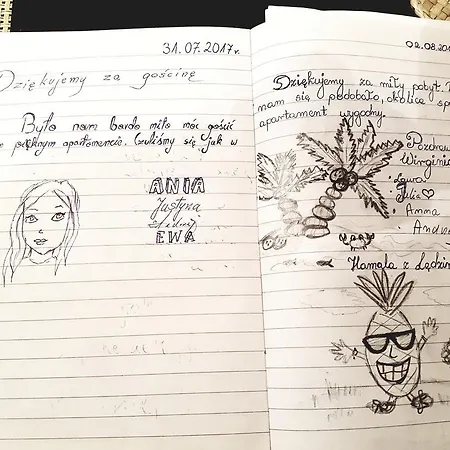 31.07.2017r.
Dziękujemy za gościnę
Było nam bardo miło móc gościć
pięknym apartamencie. Czuliśmy się jak w
ANIA
Justyna
EWA
02.08.201
Dziękujemy za miły pobyt.
nam się podobało, okolica sp
apartament wygodny.
Pozdraw
Wirginia
• Laura
• Julia♡
• Anna
Andrz
Hamala z Lędzin